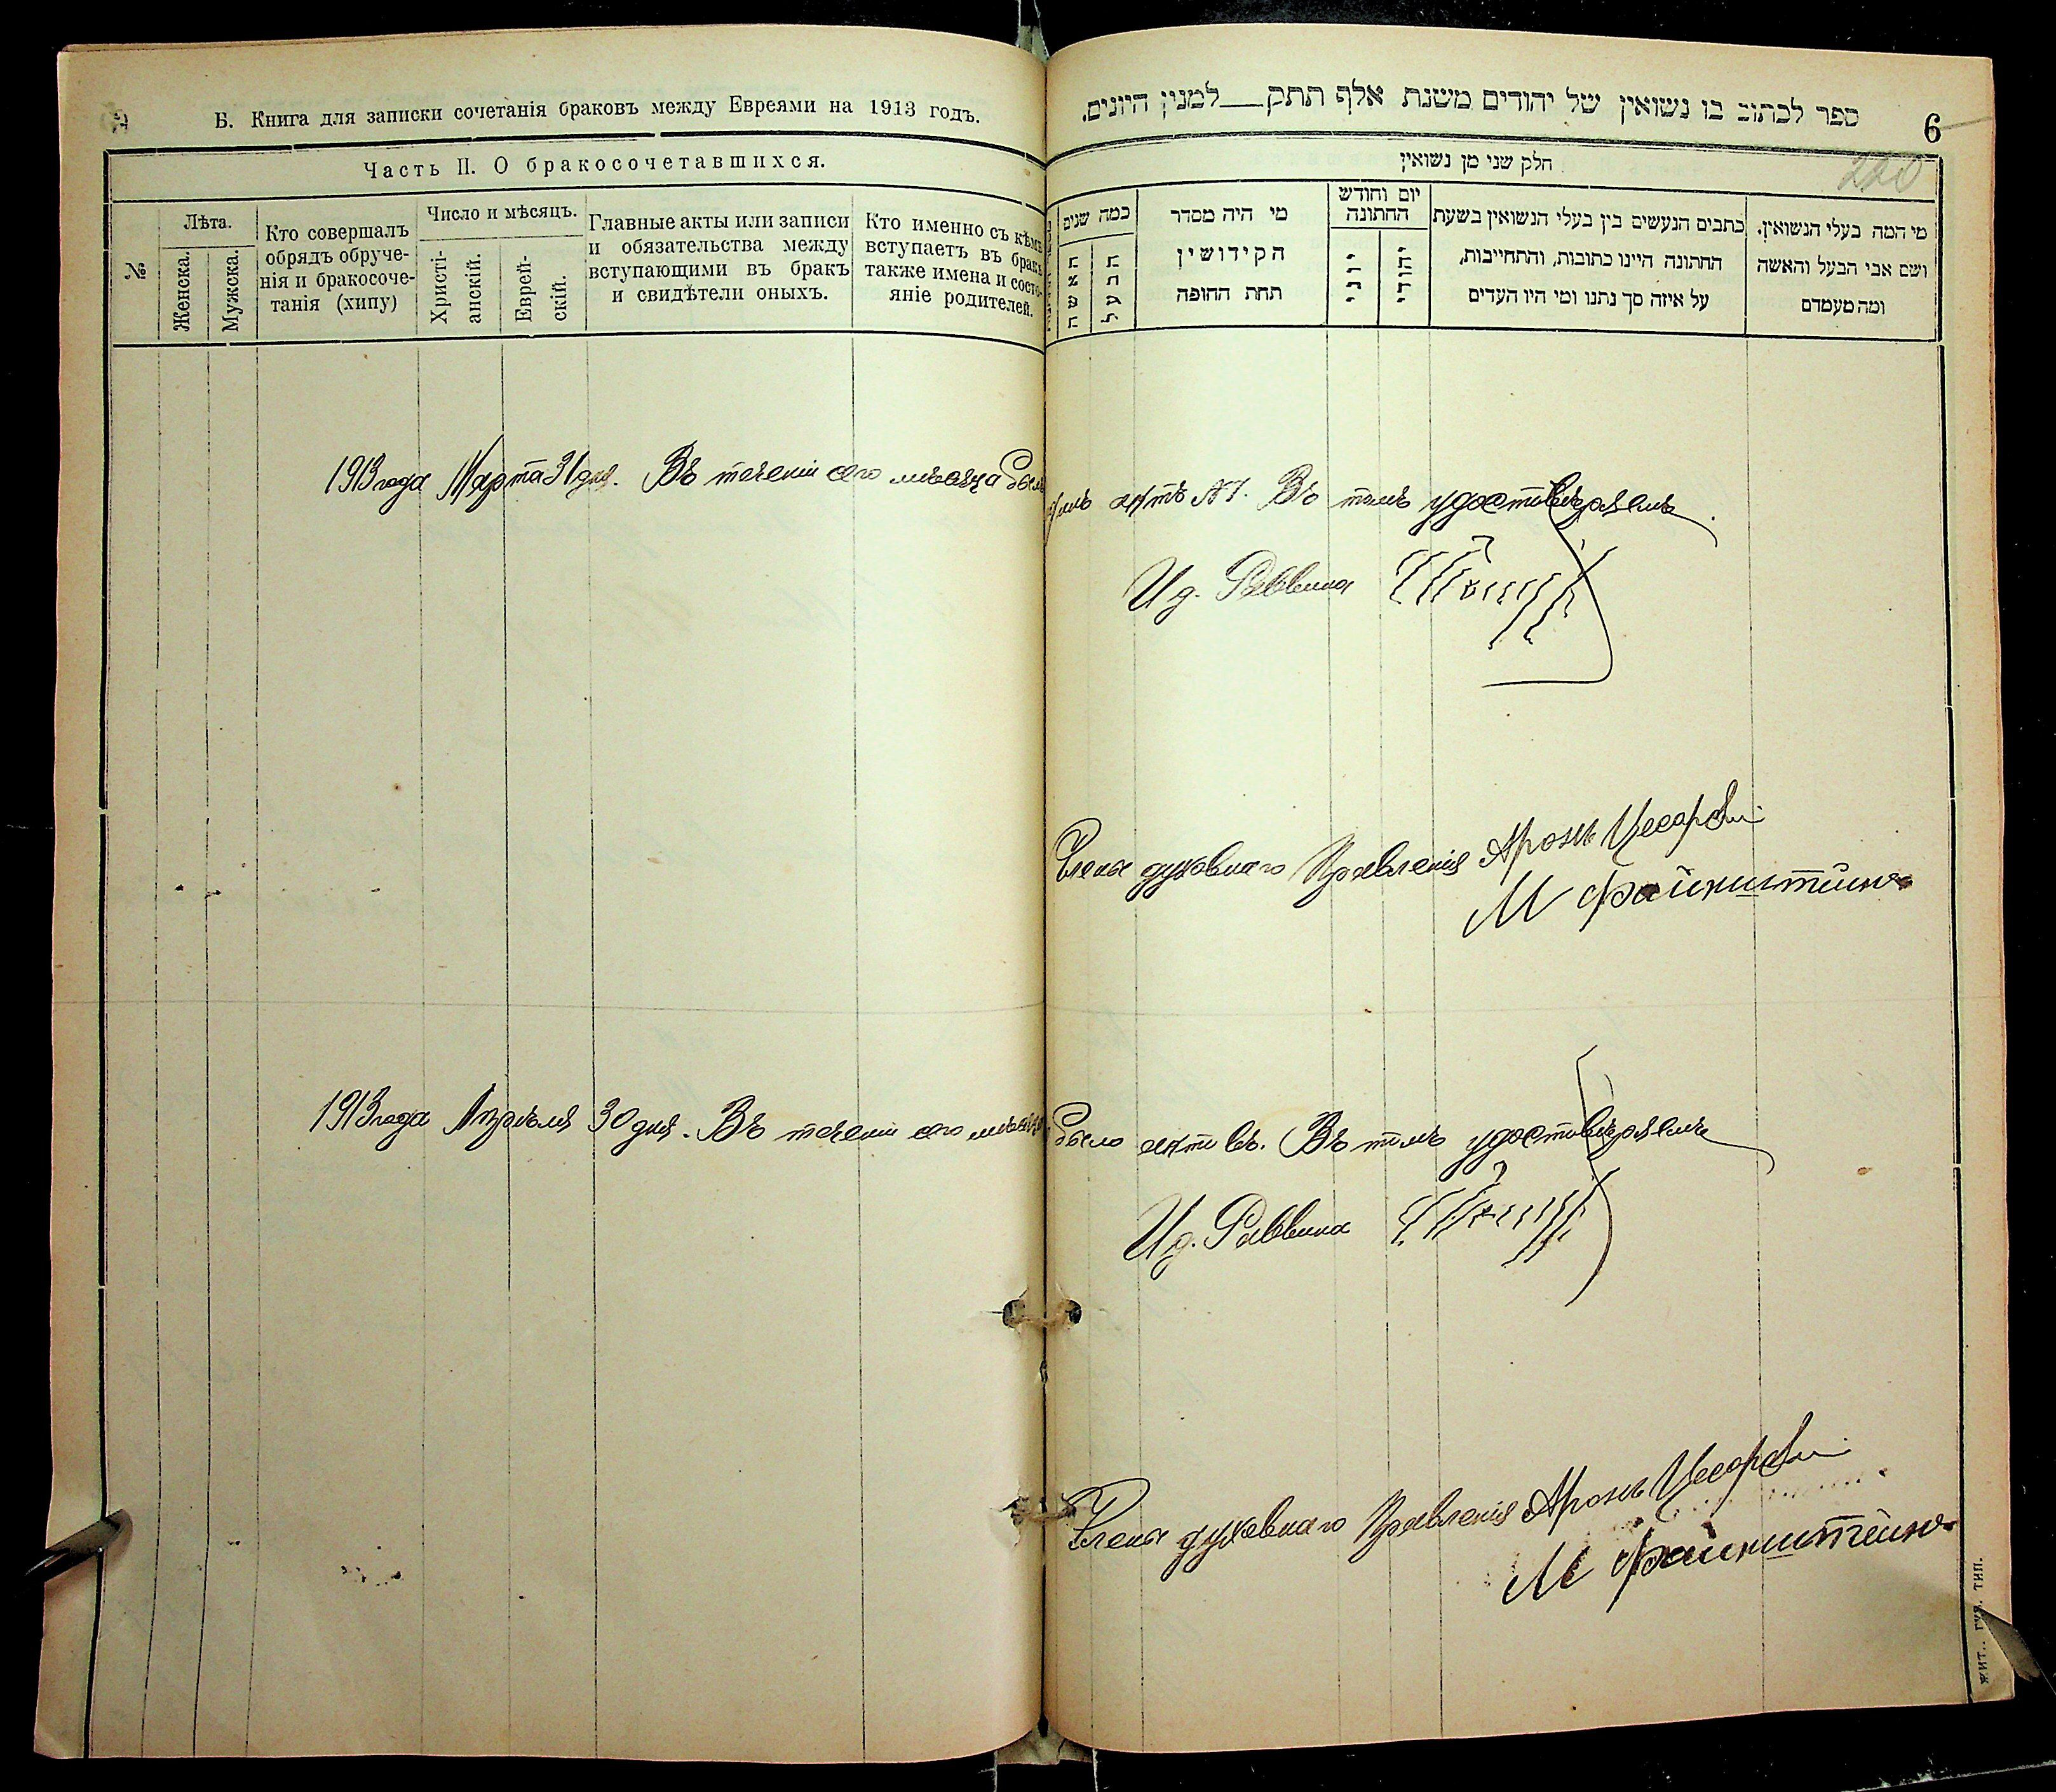 Б. Книга для записки сочетанія браковъ между Евреями на 1913 годъ.
Часть II. О бракосочетавшихся.
№
Лѣта.
Женска.
Мужска.
Кто совершалъ
обрядъ обруче-
нія и бракосоче-
танія (хипу)
Число и мѣсяцъ.
Христі-
анскій.
Еврей-
скій.
Главные акты или записи
и обязательства между
вступающими въ бракъ
и свидѣтели оныхъ.
Кто именно съ кѣмъ
вступаетъ въ бракъ
также имена и состо-
яніе родителей.
ספר לכתוב בו נשואין של יהודים משנת אלף תתק___למנין היונים.
6
220
חלק שני מן נשואין
כמה שנים
האשה
הבעל
מי היה מסדר
הקידושין
תחת החופה
יום וחודש
החתונה
יוני
יהודי
כתבים הנעשים בין בעלי הנשואין בשעת
החתונה היינו כתובות, והתחייבות,
על איזה סך נתנו ומי היו העדים
מי המה בעלי הנשואין.
ושם אבי הבעל והאשה
ומה מעמדם
1913 года Марта 31 дня. Въ теченіи сего мѣсяца былъ актъ №1. Въ томъ удостовѣряемъ.
И д. Раввина
Члены духовнаго Правленія Аронъ Цесарскій
М Файнштейнъ
1913 года Апрѣля 30 дня. Въ теченіи сего мѣсяца было актовъ. Въ томъ удостовѣряемъ
И д. Раввина
Члены духовнаго Правленія Аронъ Цесарскій
М Файнштейнъ
ЖИТ. ГУБ. ТИП.